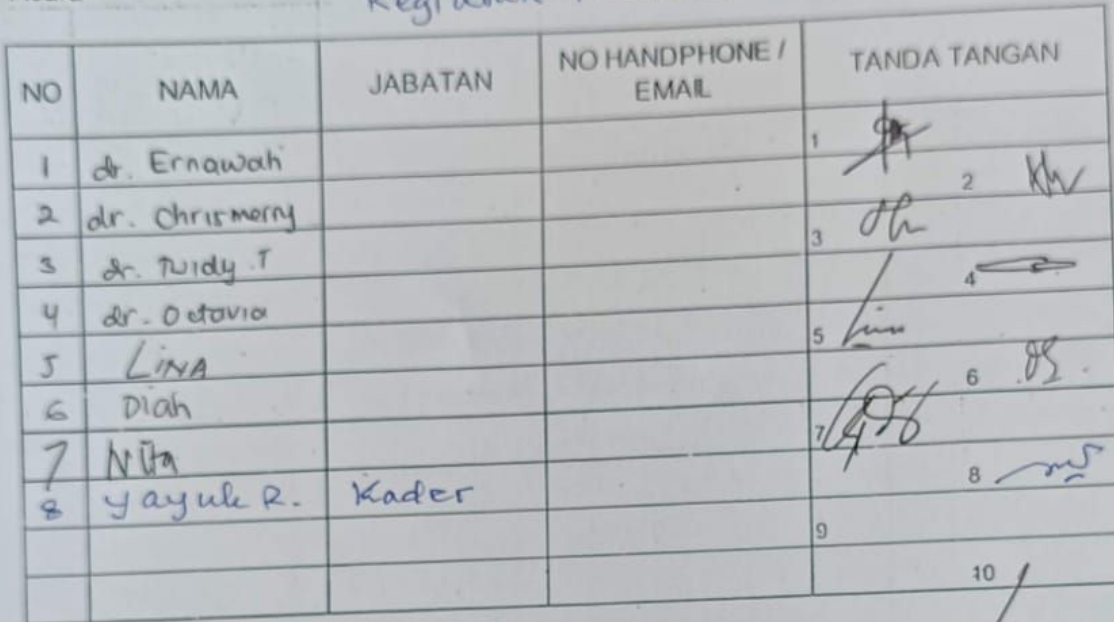 NO NAMA JABATAN NO HANDPHONE / EMAIL TANDA TANGAN
1 dr. Ernawati 1
2 dr. Chrismerry 2
3 dr. 3
4 dr. Octavia 4
5 LINA 5
6 Diah 6
7 Nita 7
8 yayuk R. Kader 8
9
10